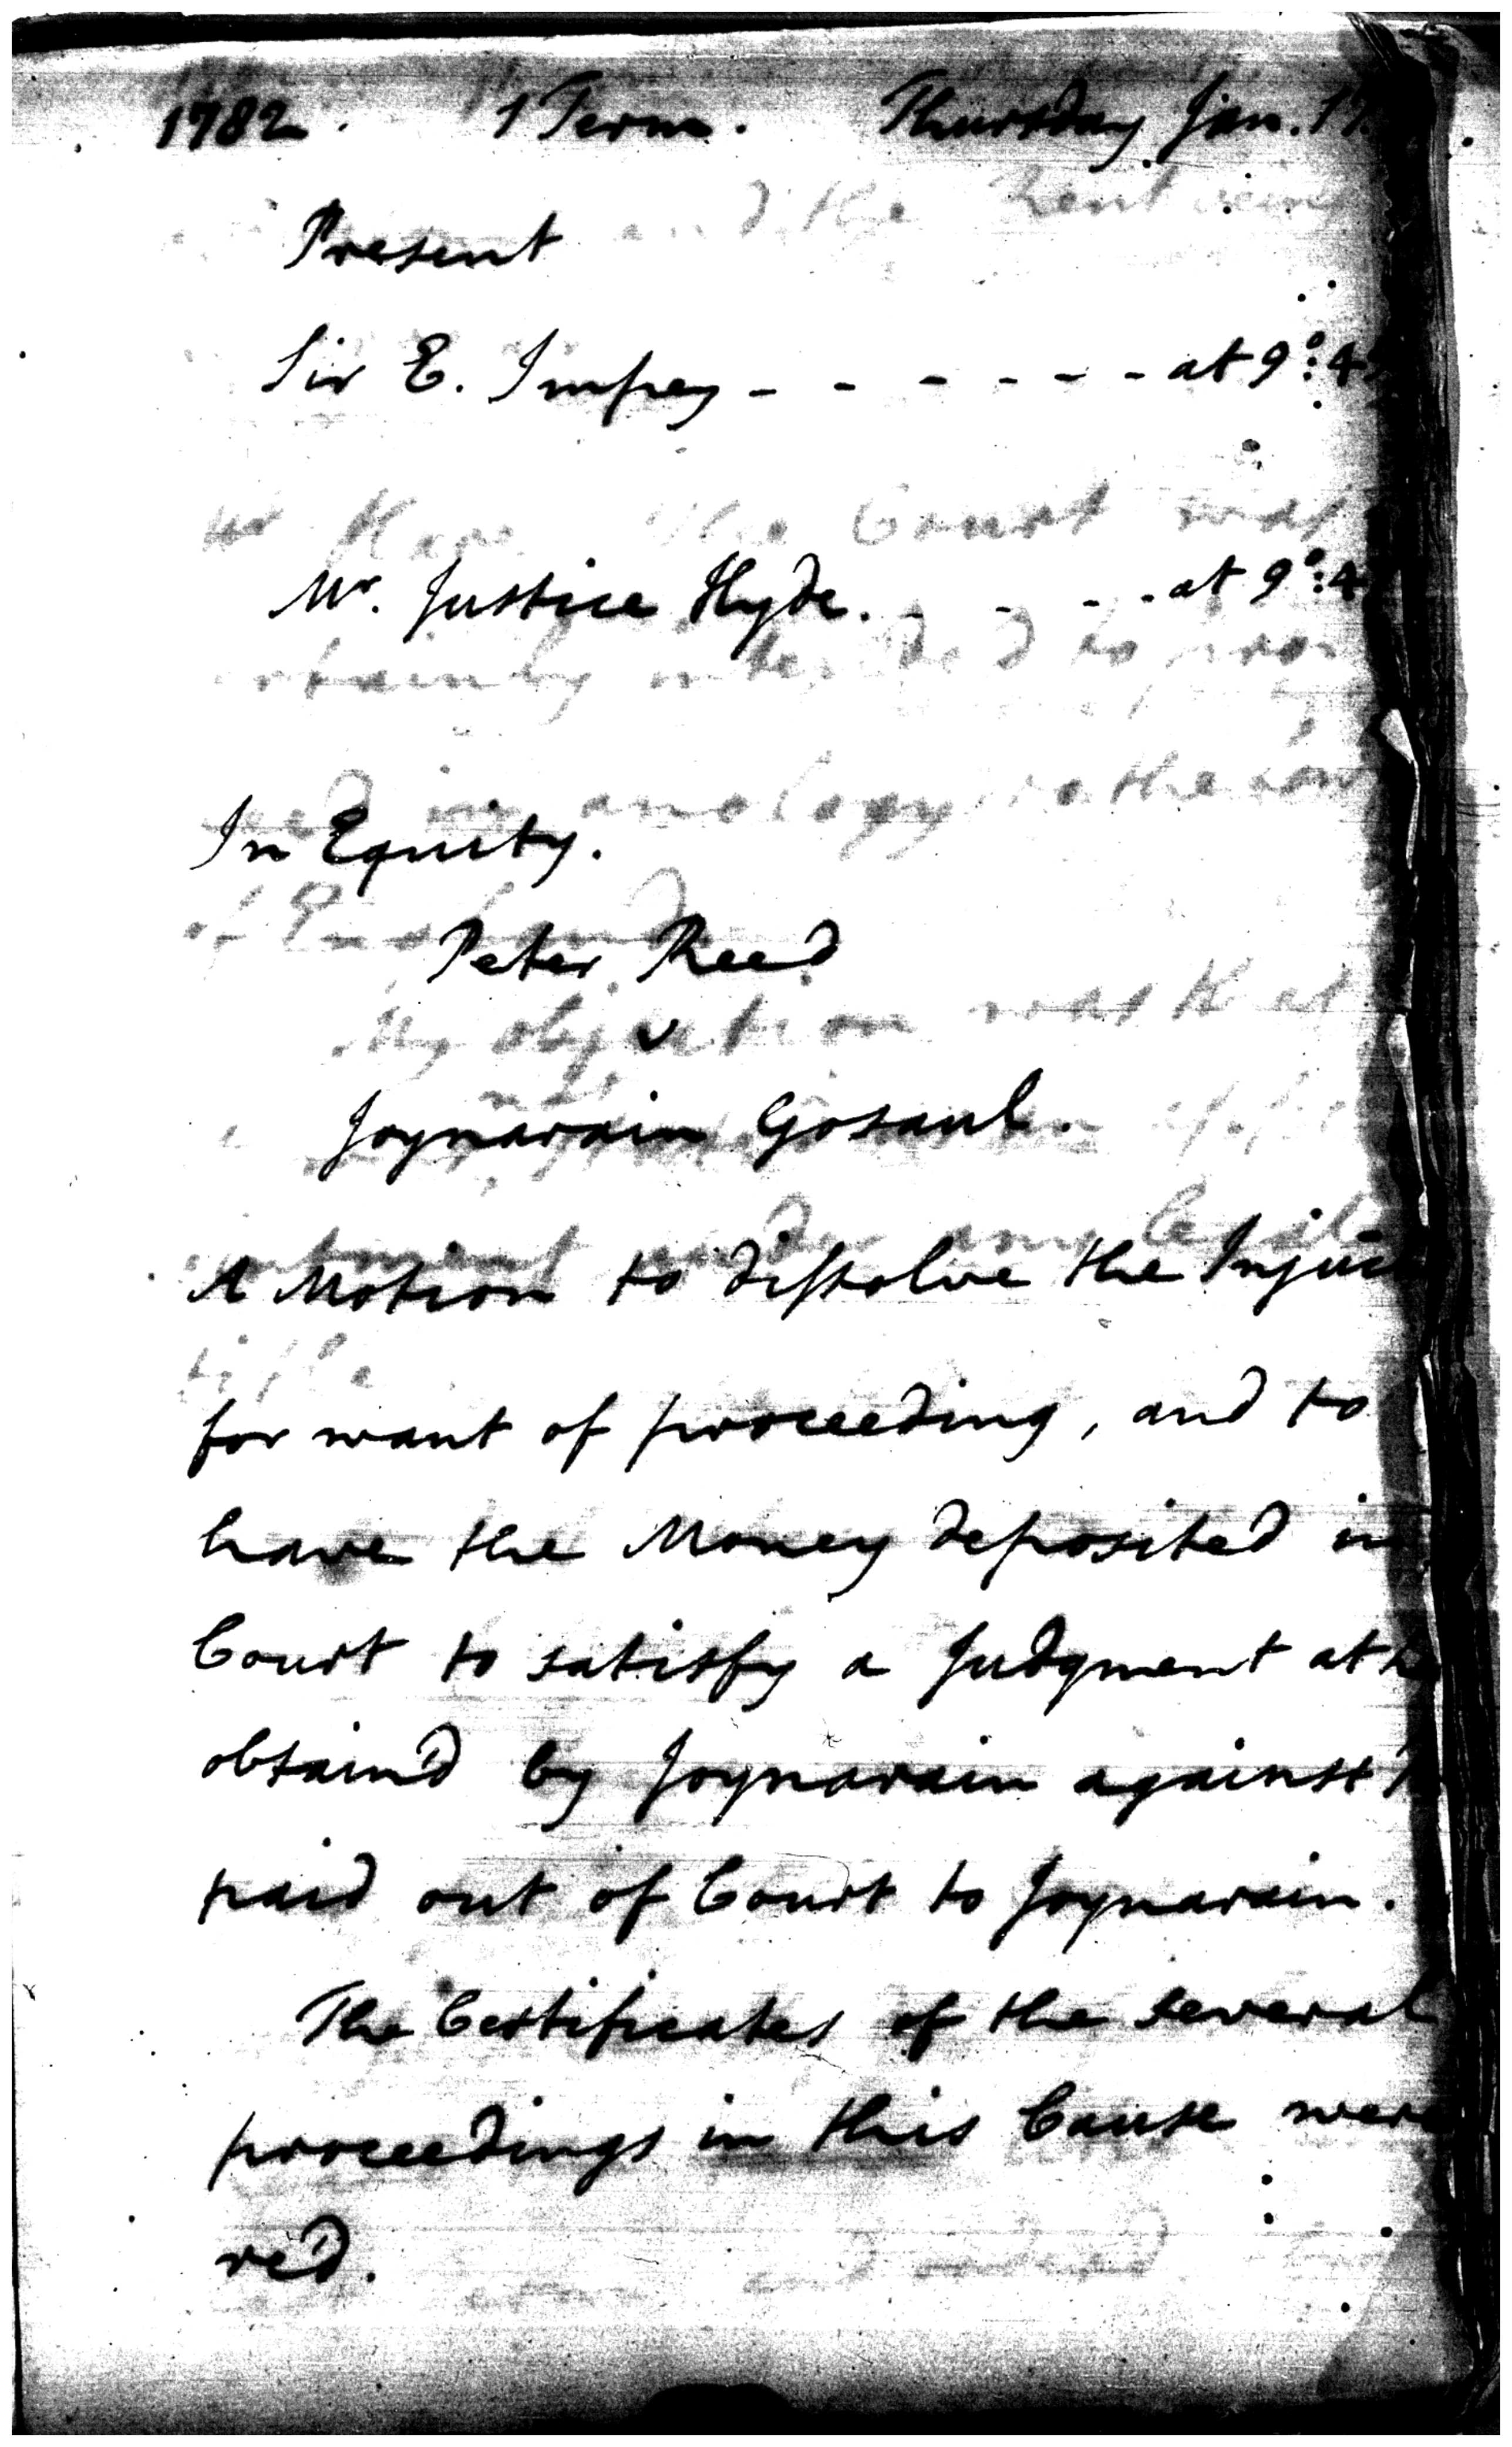 1782. 1 Term. Thursday Jan. 17.
Present
Sir E. Impey - - - - - - at 9°:4
Mr. Justice Hyde. - - - - at 9°:4
In Equity.
Peter Reed
v
Joynarain Gosaul.
A Motion to dissolve the Injunc
for want of proceeding, and to
have the Money deposited in
Court to satisfy a Judgment at
obtain'd by Joynarain against
paid out of Court to Joynarain.
The Certificates of the several
proceedings in this Cause were
re'd.